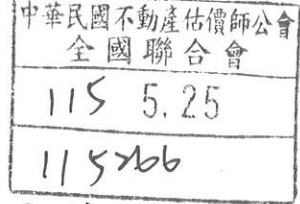 中華民國不動產估價師公會
全國聯合會
115 5.25
115266